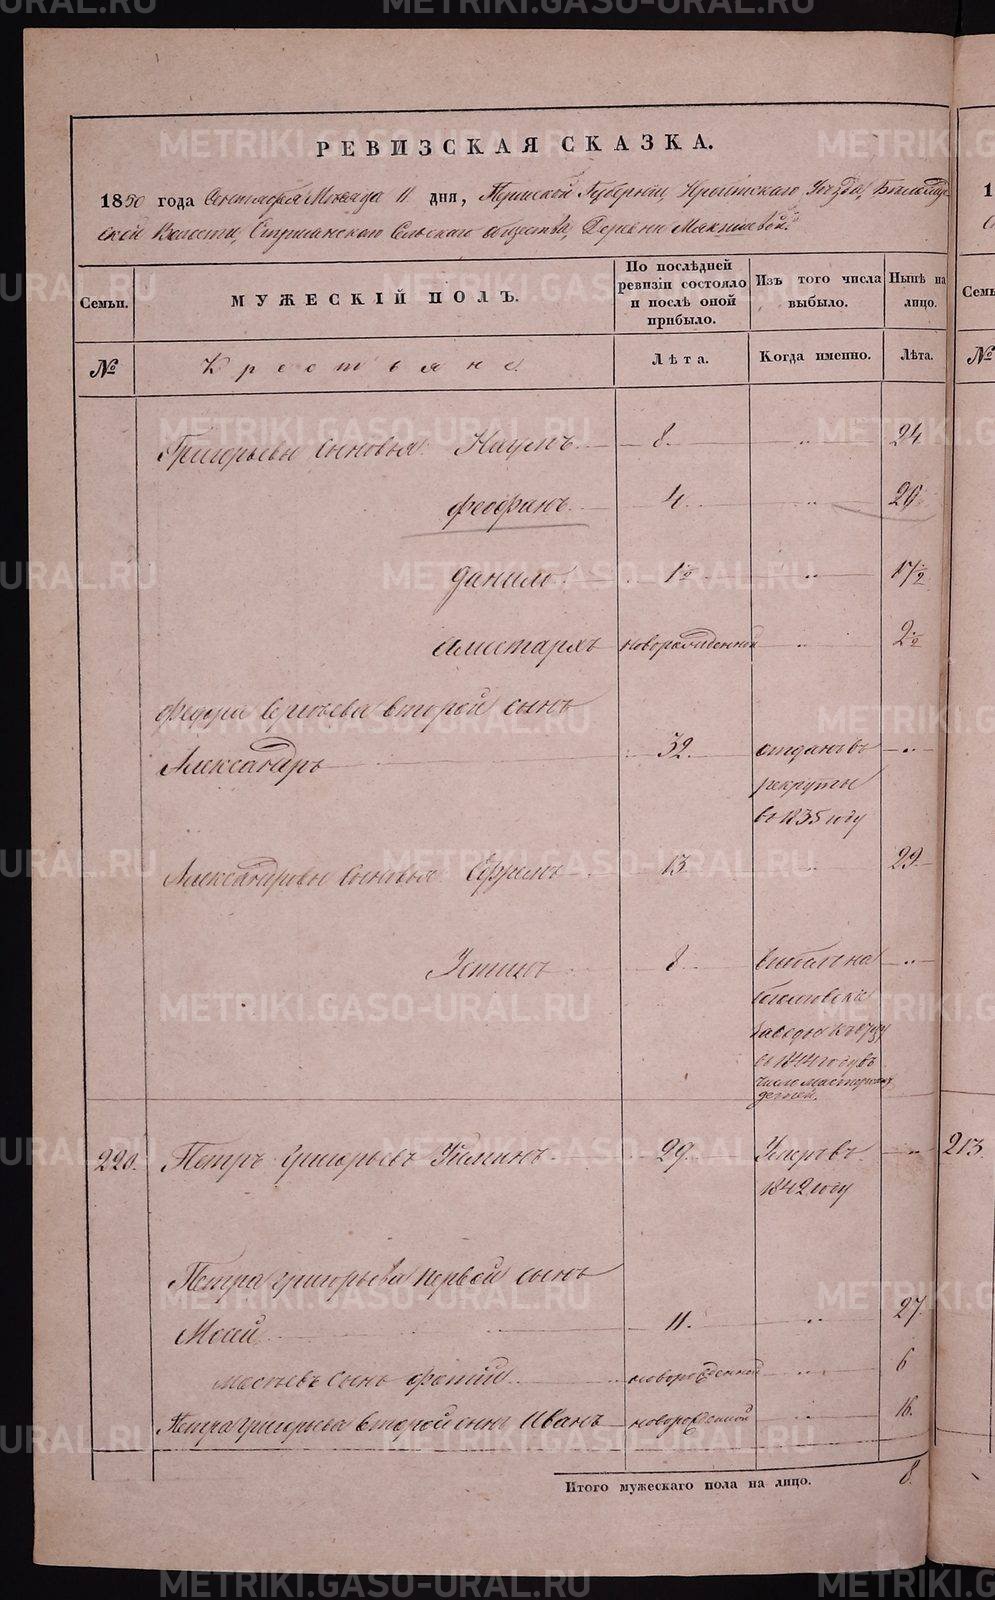 РЕВИЗСКАЯ СКАЗКА.
1850 года Сентября Месяца 11 дня, Пермской Губернии, Ирбитскаго Уезда,
ской Волости, Сельскаго общества, Деревни Мякишевой.
Семьи. МУЖЕСКІЙ ПОЛЪ. По послѣдней ревизіи состояло и послѣ оной прибыло. Изъ того числа выбыло. Нынѣ на лицо. Семь
№ Крестьяне Лѣта. Когда именно. Лѣта. №
Григорьевы сыновья Наумъ 8. 24
Феофанъ 4. 20
Данило 1½ 17½
Алистархъ новорожденной 2½
Федора Сергеева второй сынъ
Александръ 32. отданъ въ
рекруты
въ 1835 году
Александровы сыновья Ефимъ 13. 29.
Устинъ 8 выбылъ на
заводы къ отцу
въ 1844 году въ
число мастерскихъ
детей.
220. Петръ Григорьевъ 29. Умеръ въ 213.
1842 году
Петра Григорьева первой сынъ
Мосей 11. 27.
Мосеевъ сынъ Фотий новорожденной 6
Петра Григорьева второй сынъ Иванъ новорожденной 16.
Итого мужескаго пола на лицо. 8.
METRIKI.GASO-URAL.RU